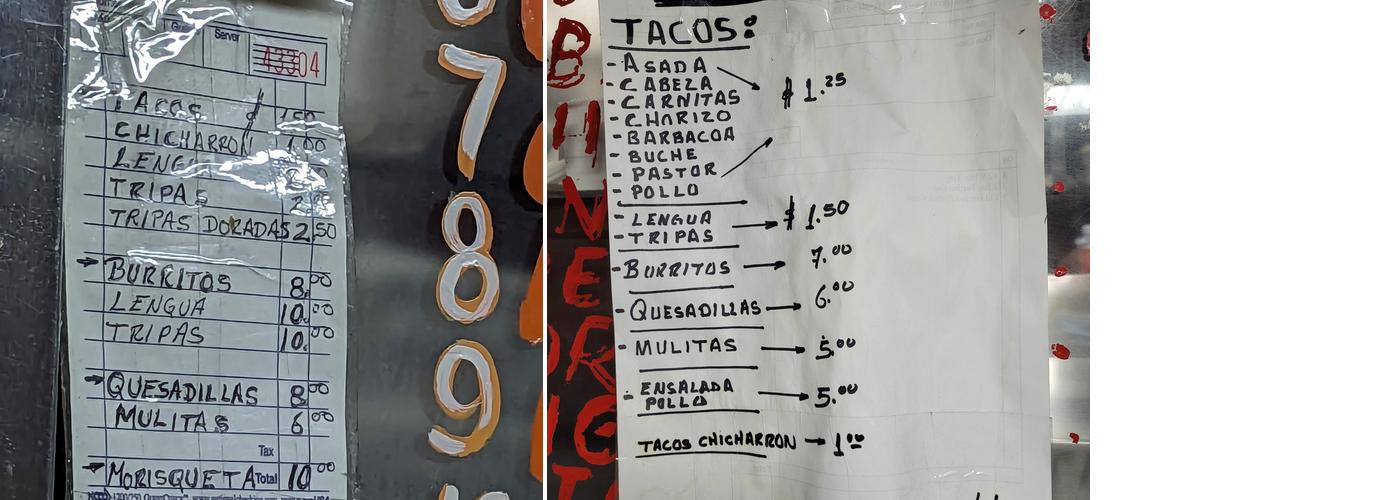 Server
43304
TACOS $ 1.50
CHICHARRON 1.00
TRIPAS
TRIPAS DORADAS 2.50
→ BURRITOS 8.00
LENGUA 10.00
TRIPAS 10.00
→ QUESADILLAS 8.00
MULITAS 6.00
Tax
→ MORISQUETA Total 10.00
7
8
9
TACOS:
- ASADA
- CABEZA $ 1.25
- CARNITAS
- CHORIZO
- BARBACOA
- BUCHE
- PASTOR
- POLLO
- LENGUA → $ 1.50
- TRIPAS
- BURRITOS → 7.00
- QUESADILLAS → 6.00
- MULITAS → 5.00
- ENSALADA → 5.00
POLLO
TACOS CHICHARRON → 1.00